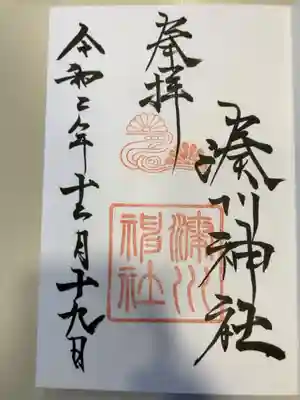 湊川神社
奉拝
湊川
神社
令和二年十二月十九日